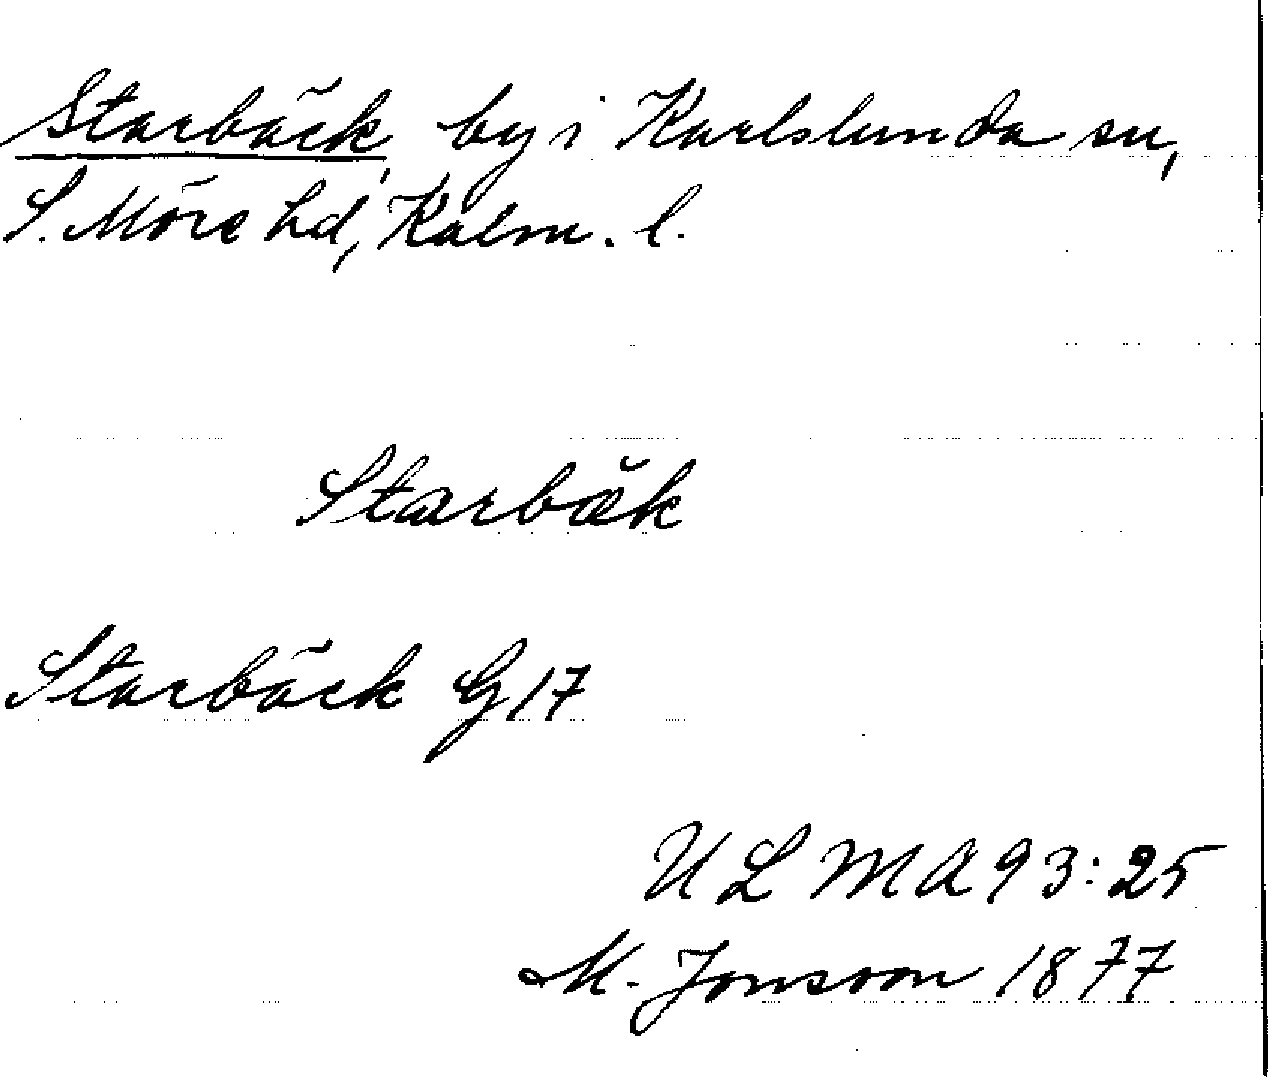 Starbäck, by i Karlslunda sn,
S. Möre hd, Kalm. l.
Starbæ̆k
Starbäck G17
ULMA 93:25
M. Jonsson 1877